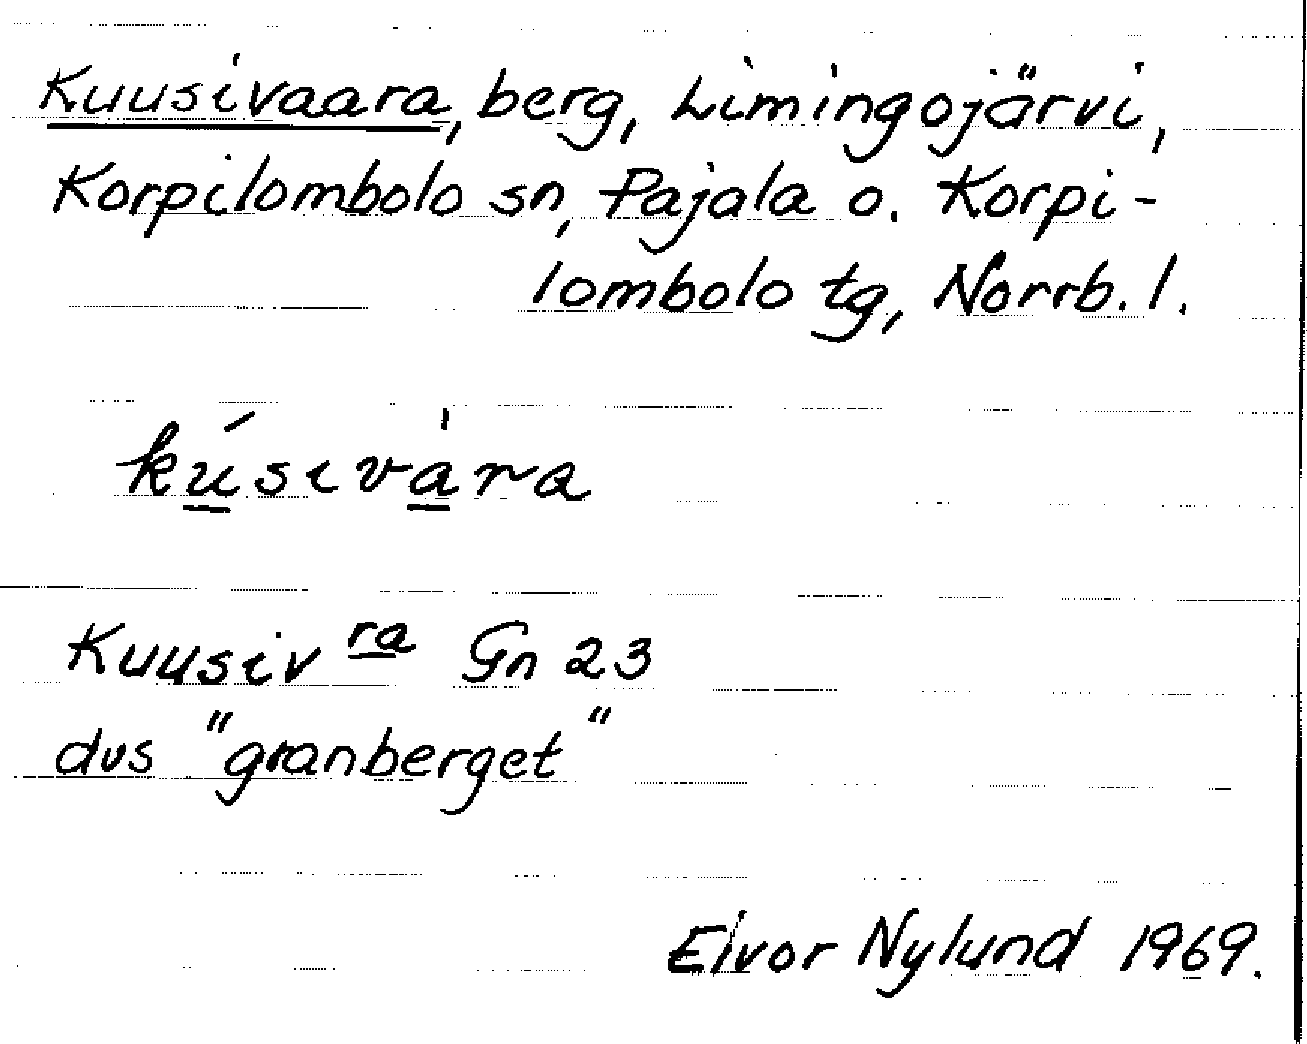 Kuusivaara, berg, Limingojärvi,
Korpilombolo sn, Pajala o. Korpi-
lombolo tg, Norrb. l.
kú̲siva̲̍ra
Kuusiv ra Gn 23
dvs "granberget"
Eivor Nylund 1969.